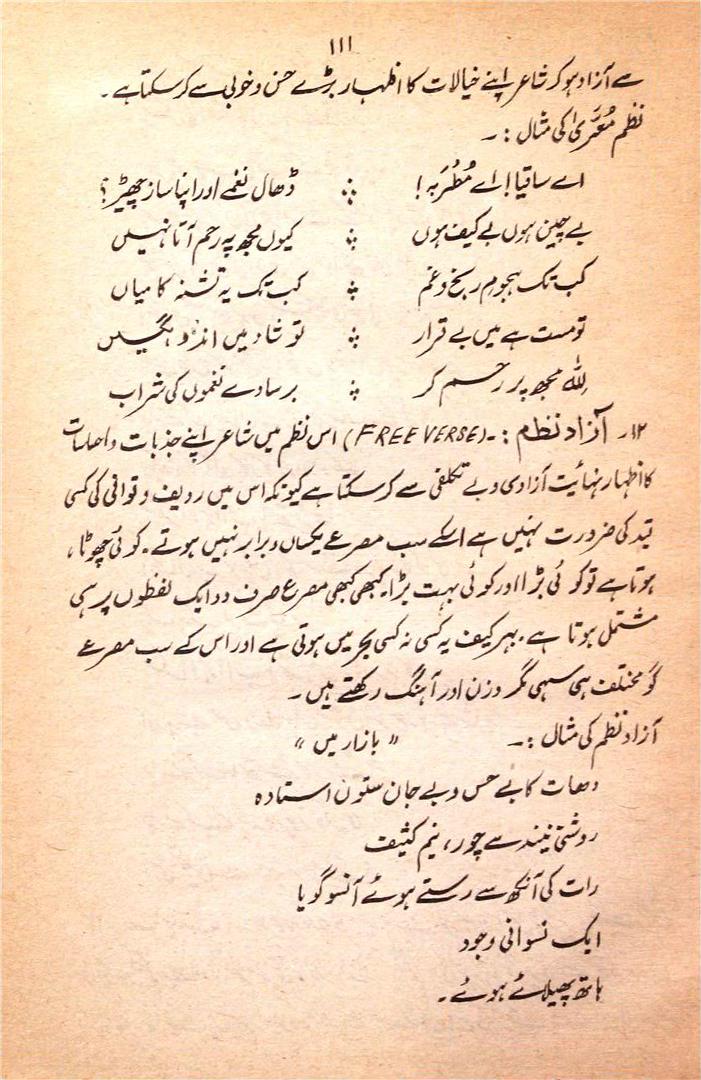 ۱۱۱
سے آزاد ہو کر شاعر اپنے خیالات کا اظہار بڑے حسن و خوبی سے کر سکتا ہے۔
نظم مُعَرّیٰ کی مثال :۔
اے ساقیا! اے مُطْرِبہ! ؞ ڈھال نغمے اور اپنا ساز چھیڑ؟
بے چین ہوں بے کیف ہوں ؞ کیوں مجھ پہ رحم آتا نہیں
کب تک ہجومِ رنج و غم ؞ کب تک یہ تشنہ کامیاں
تو مست ہے میں بے قرار ؞ تو شاد میں اندوہگیں
للہ مجھ پر رحم کر ؞ برسادے نغموں کی شراب
۱۲۔ آزاد نظم :۔ (FREE VERSE) اس نظم میں شاعر اپنے جذبات و احساسات
کا اظہار نہائیت آزادی و بے تکلفی سے کر سکتا ہے کیونکہ اس میں ردیف و قوافی کی کسی
قید کی ضرورت نہیں ہے اسکے سب مصرعے یکساں و برابر نہیں ہوتے۔ کوئی چھوٹا،
ہوتا ہے تو کوئی بڑا اور کوئی بہت بڑا۔ کبھی کبھی مصرع صرف دو ایک لفظوں پر ہی
مشتمل ہوتا ہے۔ بہر کیف یہ کسی نہ کسی بحر میں ہوتی ہے اور اس کے سب مصرعے
گو مختلف ہی سہی مگر وزن اور آہنگ رکھتے ہیں۔
آزاد نظم کی مثال :۔ " بازار میں "
دھات کا بے حس و بے جان ستون استادہ
روشنی نیند سے چور، نیم کثیف
رات کی آنکھ سے رستے ہوئے آنسو گویا
ایک نسوانی وجود
ہاتھ پھیلائے ہوئے۔